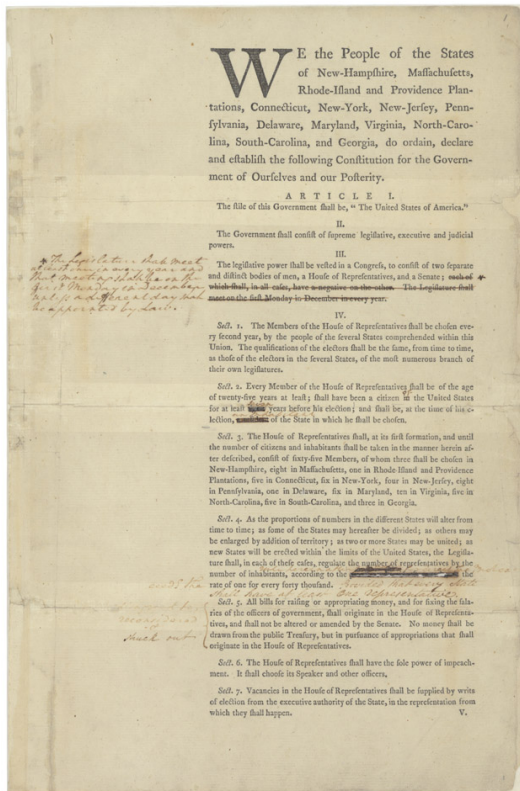 WE the People of the States
of New-Hampſhire, Maſſachuſetts,
Rhode-Iſland and Providence Plan-
tations, Connecticut, New-York, New-Jerſey, Penn-
ſylvania, Delaware, Maryland, Virginia, North-Caro-
lina, South-Carolina, and Georgia, do ordain, declare
and eſtabliſh the following Conſtitution for the Govern-
ment of Ourſelves and our Poſterity.
ARTICLE I.
The ſtile of this Government ſhall be, “ The United States of America.”
II.
The Government ſhall conſiſt of ſupreme legiſlative, executive and judicial
powers.
III.
The legiſlative power ſhall be veſted in a Congreſs, to conſiſt of two ſeparate
and diſtinct bodies of men, a Houſe of Repreſentatives, and a Senate; each of
which ſhall, in all caſes, have a negative on the other. The Legiſlature ſhall
meet on the firſt Monday in December in every year.
* The Legislature shall meet
at least once in every year and
that meeting shall be on the
first Monday in December
unless a different day shall
be appointed by Law.
IV.
Sect. 1. The Members of the Houſe of Repreſentatives ſhall be choſen eve-
ry ſecond year, by the people of the ſeveral States comprehended within this
Union. The qualifications of the electors ſhall be the ſame, from time to time,
as thoſe of the electors in the ſeveral States, of the moſt numerous branch of
their own legiſlatures.
Sect. 2. Every Member of the Houſe of Repreſentatives ſhall be of the age
of twenty-five years at leaſt; ſhall have been a citizen of the United States
for at leaſt years before his election; and ſhall be, at the time of his e-
lection, of the State in which he ſhall be choſen.
Sect. 3. The Houſe of Repreſentatives ſhall, at its firſt formation, and until
the number of citizens and inhabitants ſhall be taken in the manner herein af-
ter deſcribed, conſiſt of ſixty-five Members, of whom three ſhall be choſen in
New-Hampſhire, eight in Maſſachuſetts, one in Rhode-Iſland and Providence
Plantations, five in Connecticut, ſix in New-York, four in New-Jerſey, eight
in Pennſylvania, one in Delaware, ſix in Maryland, ten in Virginia, five in
North-Carolina, five in South-Carolina, and three in Georgia.
Sect. 4. As the proportions of numbers in the different States will alter from
time to time; as ſome of the States may hereafter be divided; as others may
be enlarged by addition of territory; as two or more States may be united; as
new States will be erected within the limits of the United States, the Legiſla-
ture ſhall, in each of theſe caſes, regulate the number of repreſentatives by the
number of inhabitants, according to the the
rate of one for every forty thouſand. Provided that every State
shall have at least one representative
Sect. 5. All bills for raiſing or appropriating money, and for fixing the ſala-
ries of the officers of government, ſhall originate in the Houſe of Repreſenta-
tives, and ſhall not be altered or amended by the Senate. No money ſhall be
drawn from the public Treaſury, but in purſuance of appropriations that ſhall
originate in the Houſe of Repreſentatives.
reconsidered
struck out
Sect. 6. The Houſe of Repreſentatives ſhall have the ſole power of impeach-
ment. It ſhall chooſe its Speaker and other officers.
Sect. 7. Vacancies in the Houſe of Repreſentatives ſhall be ſupplied by writs
of election from the executive authority of the State, in the repreſentation from
which they ſhall happen. V.